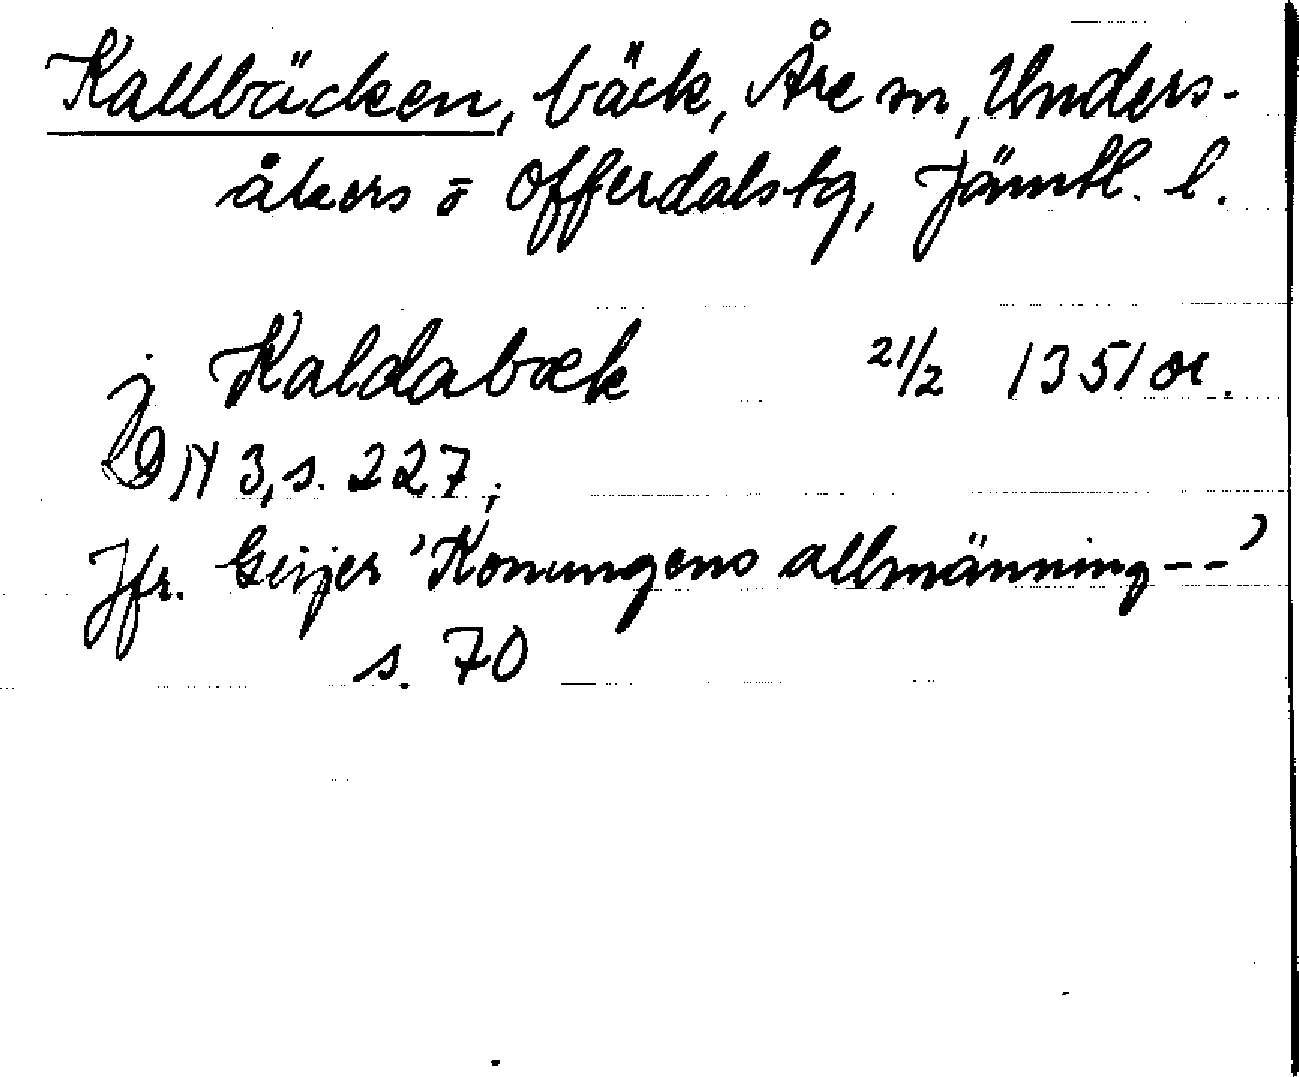 Kallbäcken, bäck, Åre sn, Unders-
åkers o Offerdals tg, Jämtl. l.
j Kaldabæk 21/2 1351 or.
DN 3, s. 227;
Jfr. Geijer 'Konungens allmänning--'
s. 70